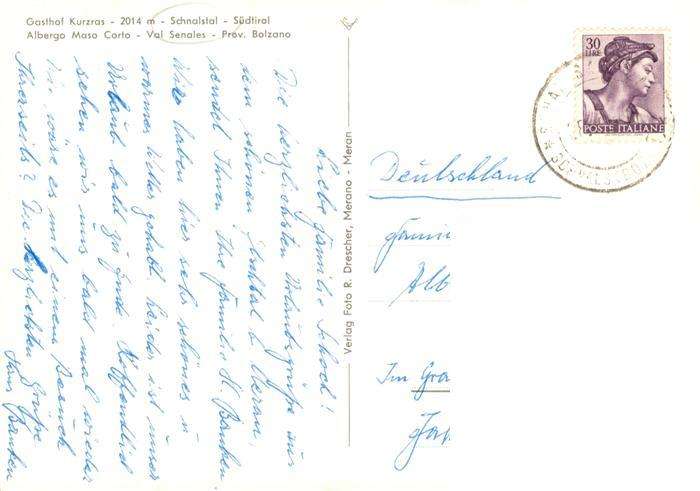 Gasthof Kurzras - 2014 m - Schnalstal - Südtirol
Albergo Maso Corto - Val Senales - Prov. Bolzano
Liebe Familie Schoch!
Die herzlichsten Urlaubsgrüße aus
dem schönen
sendet Ihnen Ihre Familie H. Banken
Wir haben hier sehr schönes u.
warmes Wetter gehabt. Leider ist unser
Urlaub bald zu Ende. Hoffentlich
sehen wir uns bald mal wieder
Wie wäre es mit einem Besuch
Ihrerseits? Die herzlichsten Grüße
Hans Banken
Verlag Foto R. Drescher, Merano - Meran
30
LIRE
POSTE ITALIANE
Deutschland
Famil
Alb
Im Gra